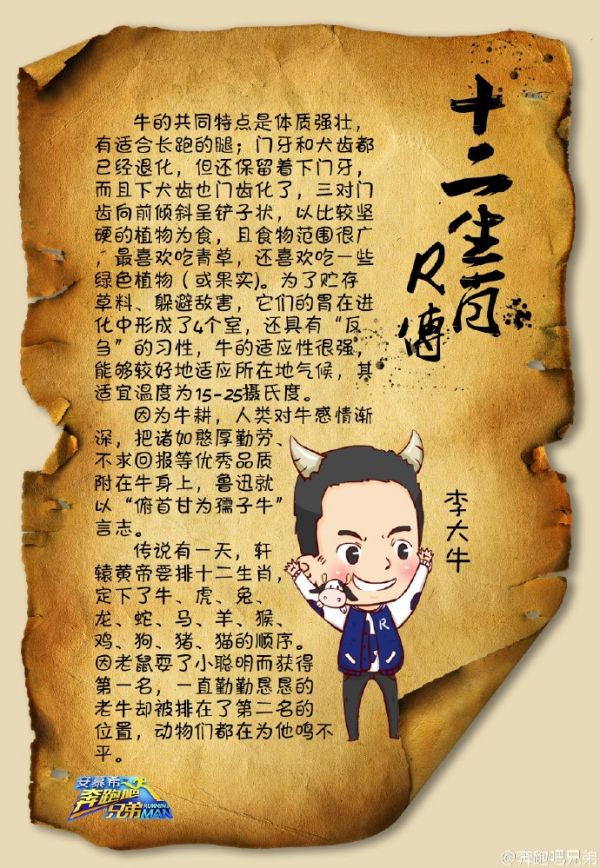 十二生肖
R傳
牛的共同特点是体质强壮，
有适合长跑的腿；门牙和犬齿都
已经退化，但还保留着下门牙，
而且下犬齿也门齿化了，三对门
齿向前倾斜呈铲子状，以比较坚
硬的植物为食，且食物范围很广
，最喜欢吃青草，还喜欢吃一些
绿色植物（或果实)。为了贮存
草料、躲避敌害，它们的胃在进
化中形成了4个室，还具有“反
刍”的习性，牛的适应性很强，
能够较好地适应所在地气候，其
适宜温度为15-25摄氏度。
因为牛耕，人类对牛感情渐
深，把诸如憨厚勤劳、
不求回报等优秀品质
附在牛身上，鲁迅就
以“俯首甘为孺子牛”
言志。
传说有一天，轩
辕黄帝要排十二生肖，
定下了牛、虎、兔、
龙、蛇、马、羊、猴、
鸡、狗、猪、猫的顺序。
因老鼠耍了小聪明而获得
第一名，一直勤勤恳恳的
老牛却被排在了第二名的
位置，动物们都在为他鸣不
平。
李大牛
R
安慕希
奔跑吧
兄弟
RUNNING MAN
@奔跑吧兄弟